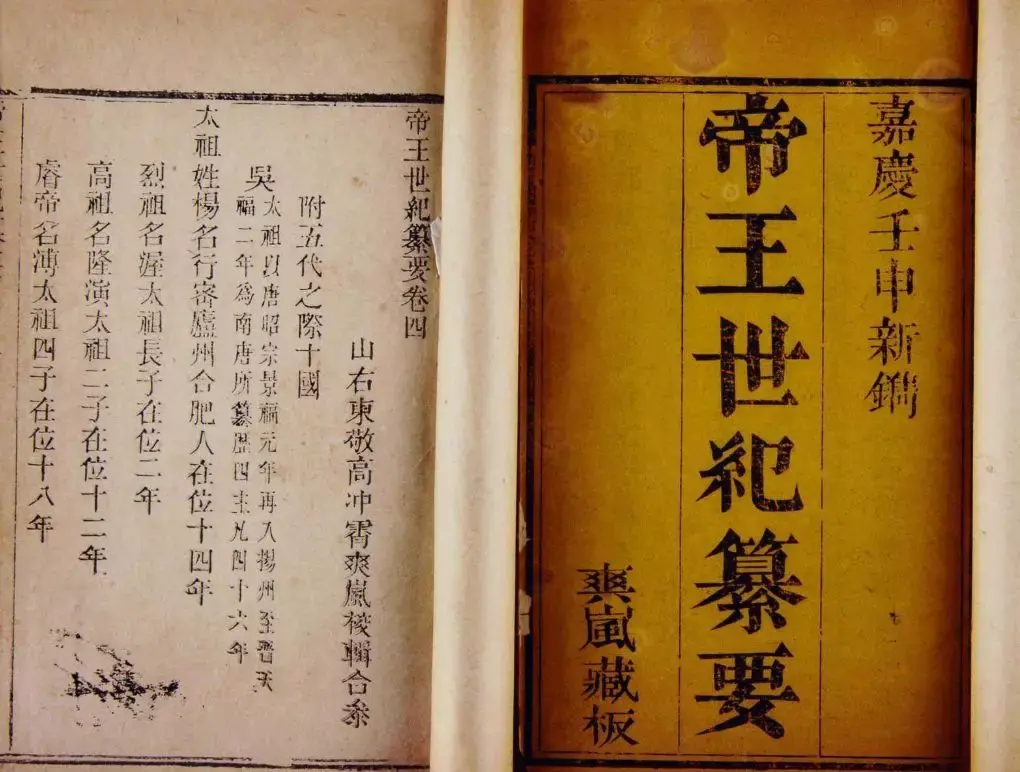 嘉慶壬申新鐫
帝王世紀纂要
爽嵐藏板
帝王世紀纂要卷四
山右東敬高冲霄爽嵐裬輯合叅
附五代之際十國
吳
太祖以唐昭宗景福元年再入揚州至晉天
福二年為南唐所篡歷四主凡四十六年
太祖姓楊名行密廬州合肥人在位十四年
烈祖名渥太祖長子在位二年
高祖名隆演太祖二子在位十二年
睿帝名溥太祖四子在位十八年